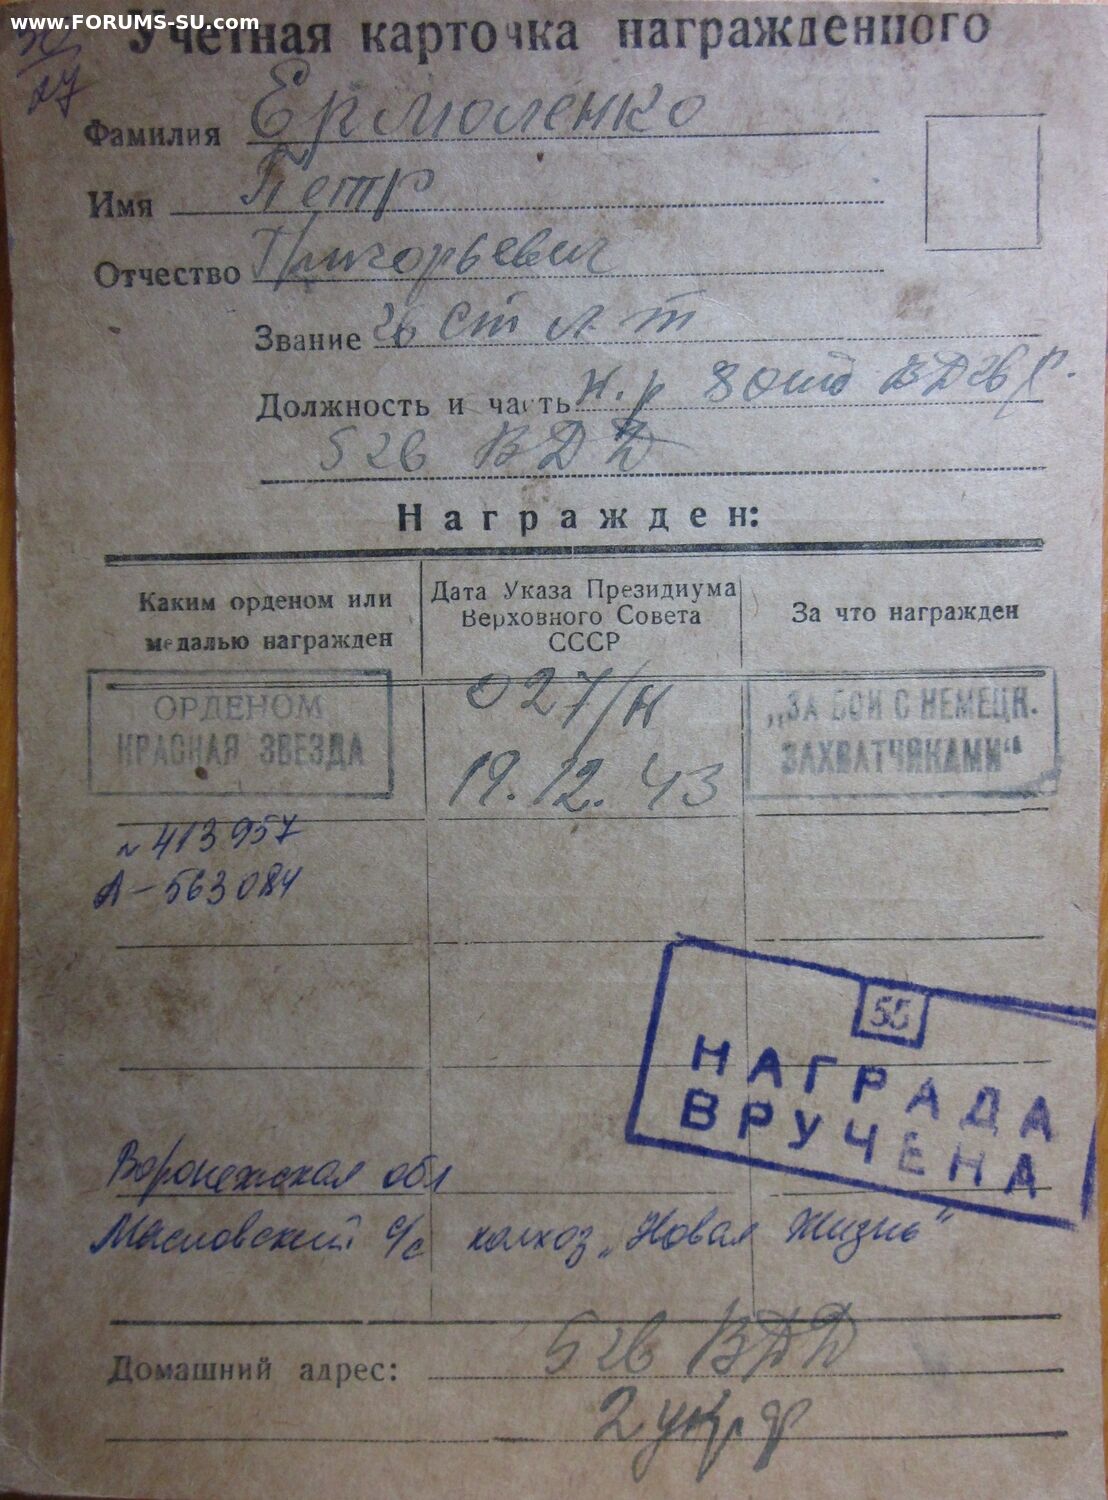 www.FORUMS-SU.com
Учетная карточка награжденного
27
Фамилия Ермоленко
Имя Петр
Отчество Григорьевич
Звание гв ст л-т
Должность и часть к.р 8 ВДбр.
5 гв ВДД
Награжден:
Каким орденом или медалью награжден
Дата Указа Президиума Верховного Совета СССР
За что награжден
ОРДЕНОМ
КРАСНАЯ ЗВЕЗДА
027/н
19.12.43
„ЗА БОИ С НЕМЕЦК.
ЗАХВАТЧИКАМИ“
№ 413957
А-563084
55
НАГРАДА
ВРУЧЕНА
Воронежская обл
Масловский с/с колхоз „Новая Жизнь"
Домашний адрес: 5 гв ВДД
2 укр ф